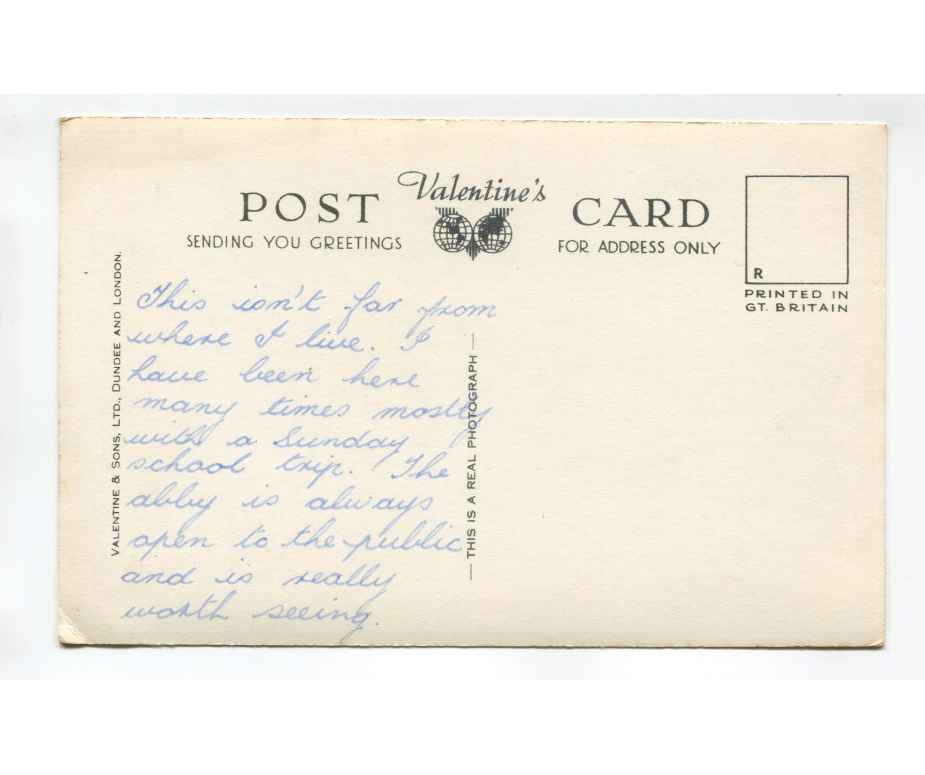 Valentine's
POST CARD
SENDING YOU GREETINGS
FOR ADDRESS ONLY
R
PRINTED IN
GT. BRITAIN
VALENTINE & SONS, LTD., DUNDEE AND LONDON.
THIS IS A REAL PHOTOGRAPH
This isn't far from
where I live. I
have been here
many times mostly
with a Sunday
school trip. The
abby is always
open to the public
and is really
worth seeing.